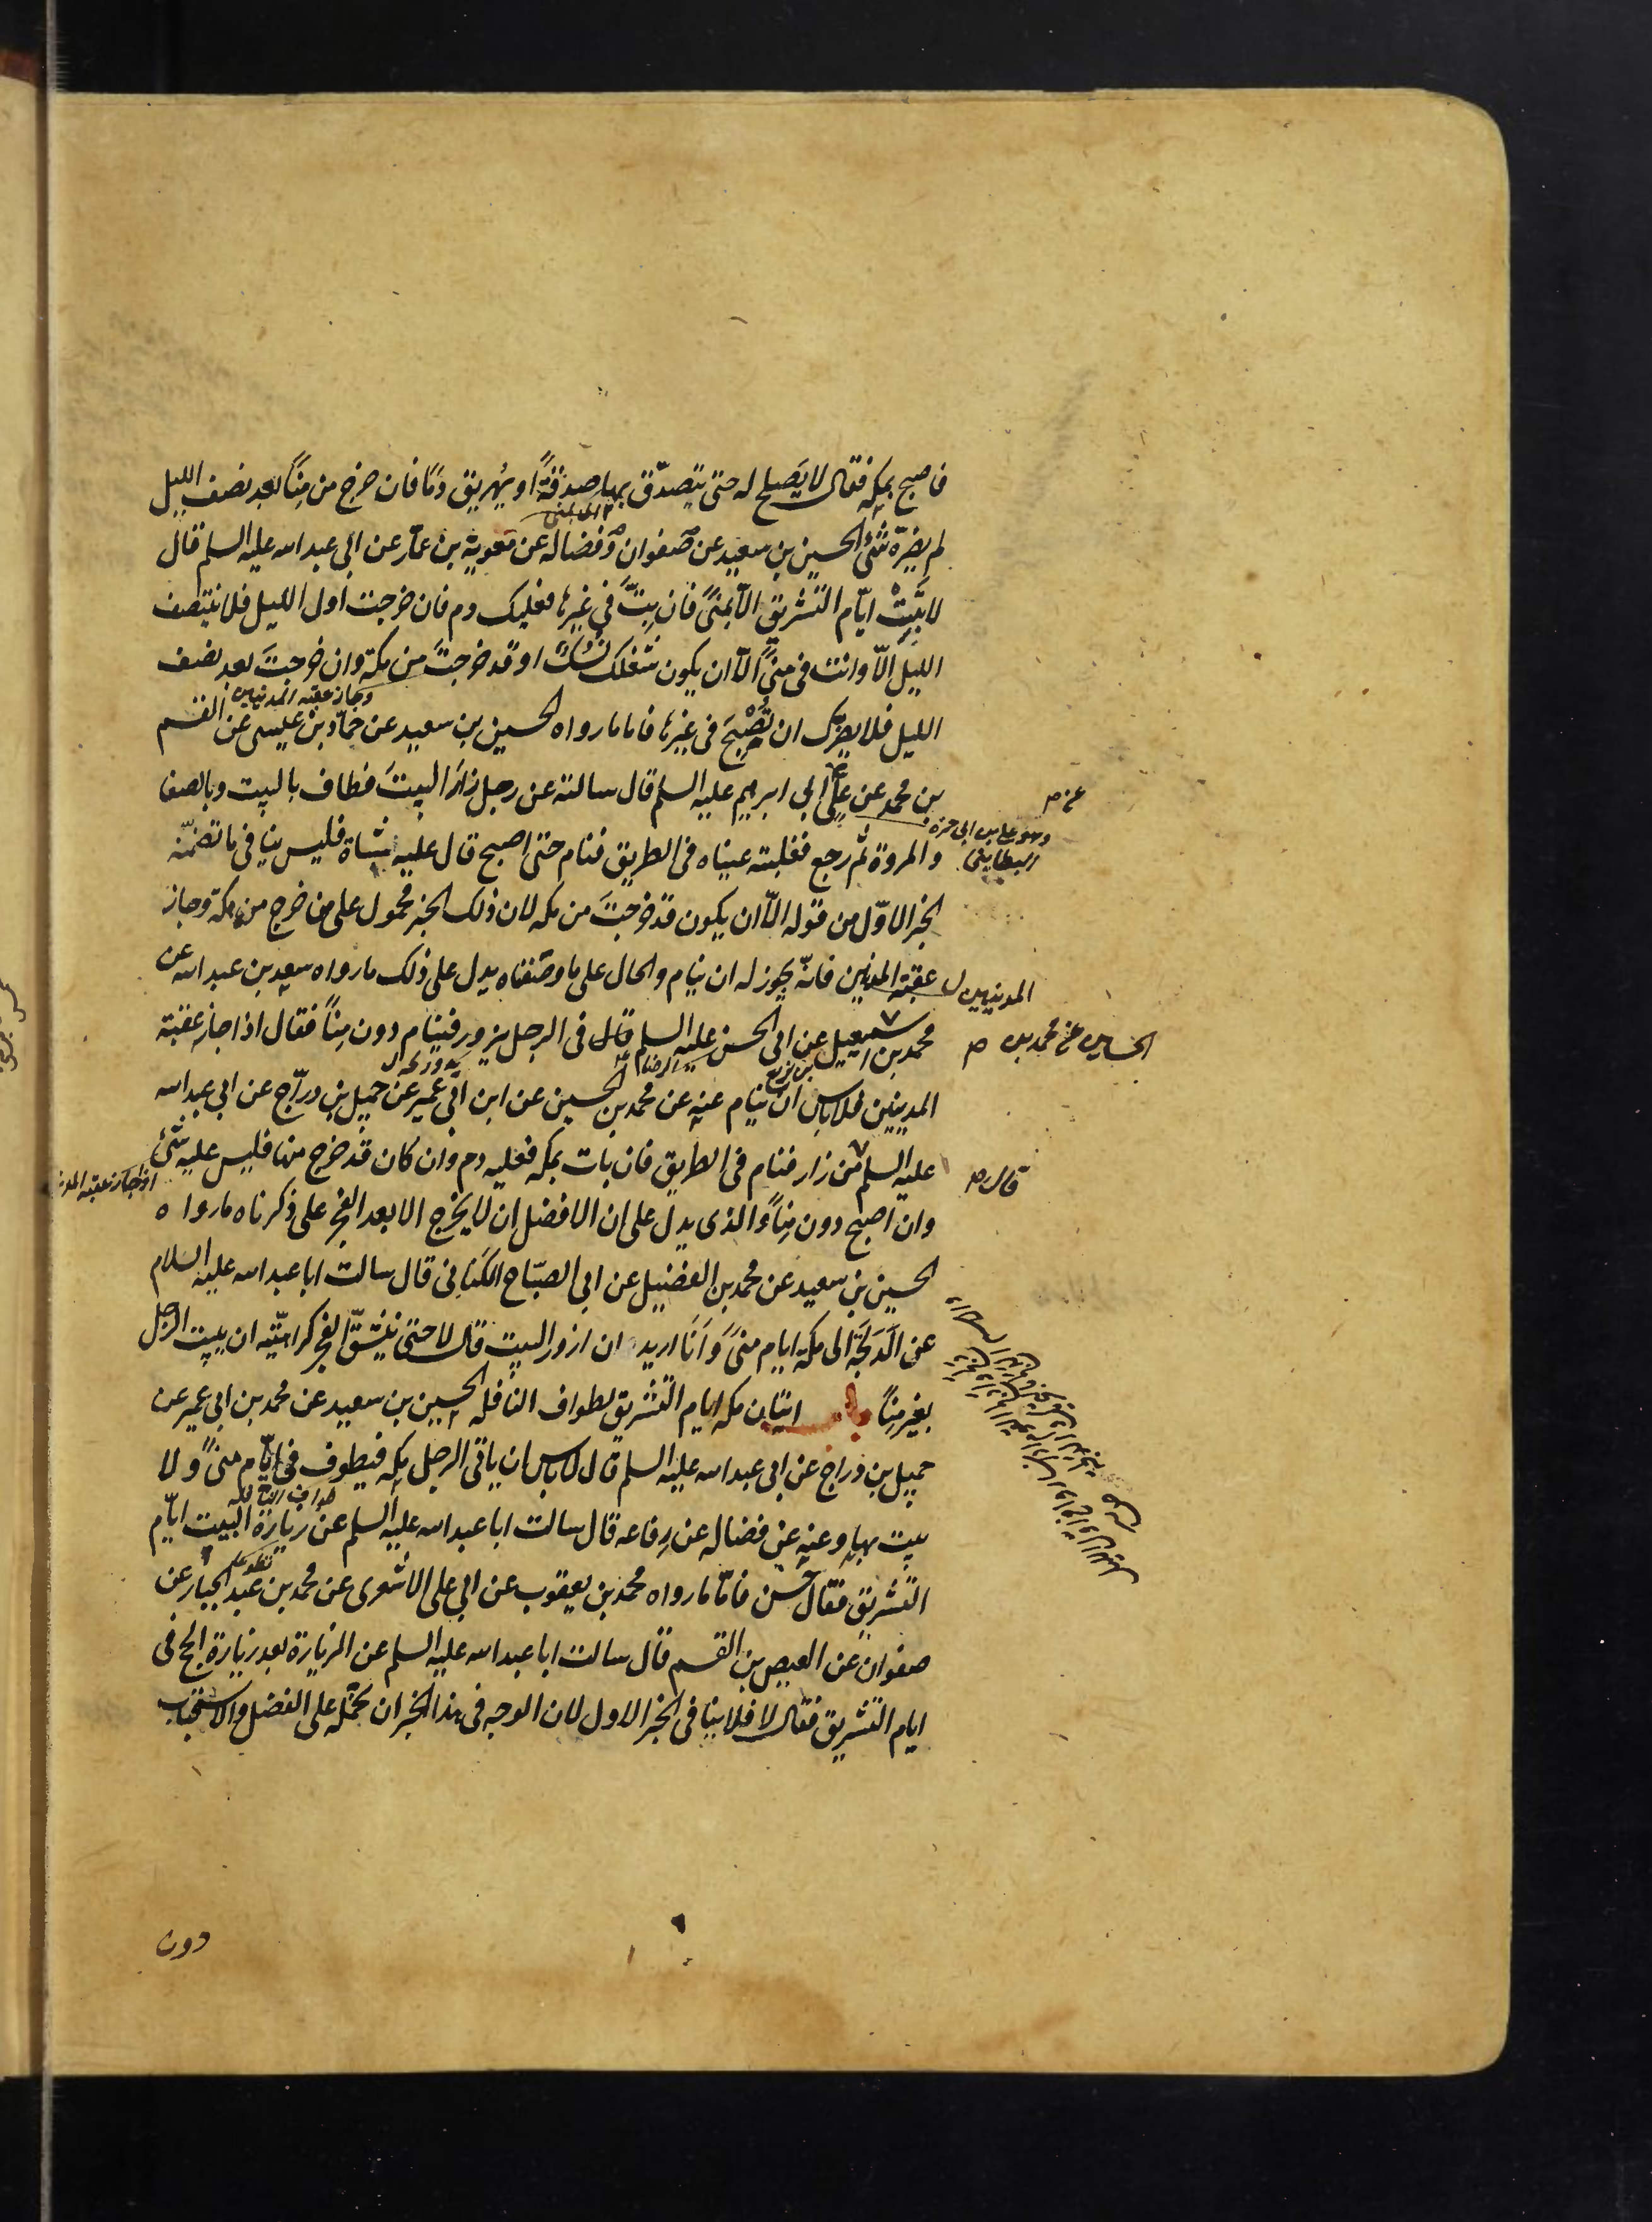 فاصبح بمكة فقال لا يصلح له حتى يتصدّق بها صدقةً او يُهريق دمًا فان خرج من مِنًا بعد نصف الليل
لم يضرّه شىٔ الحسين بن سعيد عن صفوان وفضاله عن معوية بن عمار عن ابى عبد الله عليه السلم قال
لا تَبِتْ ايّام التشريق الّا بمنىً فان بِتَّ فى غيرها فعليك دم فان خرجت اول الليل فلا ينتصف
الليل الّا وانت فى منىً الّا ان يكون شغلك نُسُكَك او قد خرجتَ من مكة وان خرجتَ بعد نصف
وجاز عقبة المدنيين
الليل فلا يضرّك ان تُصْبِحَ فى غيرها فاما ما رواه الحسين بن سعيد عن حمّاد بن عيسى عن القسم
بن محمد عن علىّ ابى ابرهيم عليه السلم قال سالته عن رجل زارَ البيتَ فطاف بالبيت وبالصفا
عن ص
وهو على بن ابى حمزه
البطاينى
والمروة ثم رجع فغلبته عيناه فى الطريق فنام حتى اصبح قال عليه شاة فليس ينافى ما تضمّنه
الخبر الاوّل من قوله الّا ان يكون قد خرجتَ من مكه لان ذلك الخبر محمول على من خرج من مكة وجاز
عقبة المدنيين فانّه يجوز له ان ينام والحال على ما وصفناه يدل على ذلك ما رواه سعد بن عبد الله عن
المدينيين ل
محمد بن اسمعيل عن ابى الحسن عليه السلم قال فى الرجل يزور فينام دون مِنًا فقال اذا جاز عقبة
الحسين عن محمد بن ص
بن بزيع
الرضا
المدينين فلا باس ان ينام عنه عن محمد بن الحسين عن ابن ابى عمير عن جميل بن درّاج عن ابى عبد الله
عليه السلم من زار فنام فى الطريق فان بات بمكه فعليه دم وان كان قد خرج منها فليس عليه شىٔ
قال ص
اذا جاز عقبة المد
وان اصبح دون مِنًا والذى يدل على ان الافضل ان لا يخرج الا بعد الفجر على ذكرناه ما رواه
الحسين بن سعيد عن محمد بن الفضيل عن ابى الصبّاح الكنانى قال سالت ابا عبد الله عليه السلام
عن الدَلجَة الى مكة ايام منىً وَاَنَا اريد ان ازور البيت قال لا حتى ينشقّ الفجر كراهيّته ان يبيت الرجل
بغير مِنًا باب اتيان مكه ايام التشريق لطواف النافله الحسين بن سعيد عن محمد بن ابى عمير عن
جميل بن دراج عن ابى عبد الله عليه السلم قال لا باس ان ياتى الرجل مكه فيطوف فى ايّام منىً ولا
طواف النافله
يبيت بها وعنه عن فضاله عن رِفاعه قال سالت ابا عبد الله عليه السلم عن زيارة البيت ايّام
التشريق فقال حسن فامّا ما رواه محمد بن يعقوب عن ابى على الاشعرى عن محمد بن عبد الجبار عن
صفوان عن العيص بن القسم قال سالت ابا عبد الله عليه السلم عن الزيارة بعد زيارة الحج فى
ايام التشريق فقال لا فلا ينافى الخبر الاول لان الوجه فى هذا الخبر ان نحمّله على الفضل والاستحباب
دون